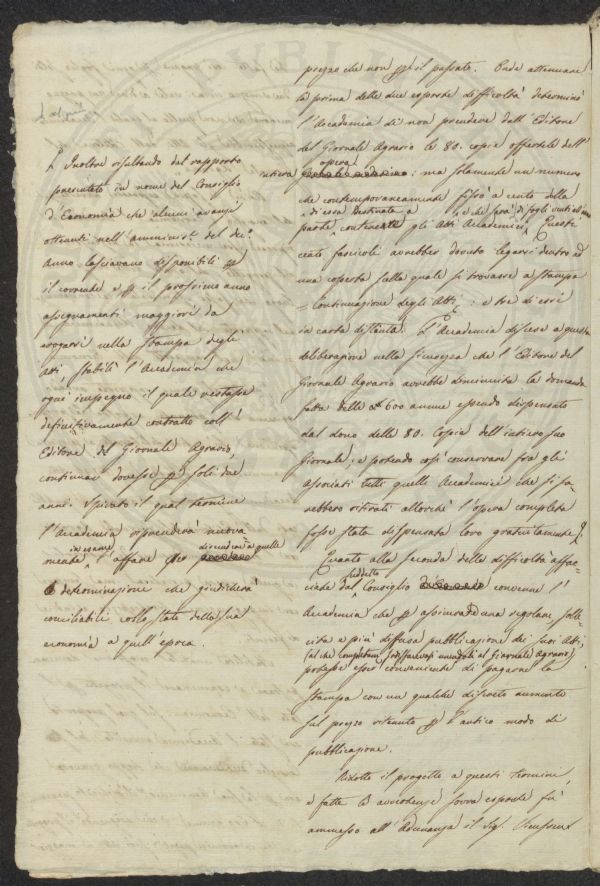 Inoltre risultando dal rapporto
presentato in nome del Consiglio
d'Economia che alcuni avanzi
ottenuti nell'amministr. del de.
Anno lasciavano disponibili
il corrente e il prossimo anno
assegnamenti maggiori da
erogarsi nella stampa degli
Atti, stabilì l'Accademia che
ogni impegno il quale restasse
definitivamente contratto coll'
Editore del Giornale Agrario,
continuar dovesse soli due
anni. Spirato il qual termine
l'Accademia riprenderà nuova
mente in esame l'affare
discenderà a quelle
determinazioni che giudicherà
conciliabili collo stato della sua
economia a quell'epoca.
prezzo che non il passato. Onde attenuare
la prima delle due esposte difficoltà determinò
l'Accademia di non prendere dall'Editore
del Giornale Agrario le 80. copie offertele dell'
intiera opera : ma solamente un numero
che contemporaneamente fissò a cento della
parte di essa destinata a contenere gli Atti Accademici e che sarà di fogli venti all'anno. Questi
cento fascicoli avrebber dovuto legarsi dentro ad
una coperta sulla quale si trovasse a stampa
= Continuazione degli Atti : e tre di essi
in carta distinta. L'Accademia discese a questa
deliberazione nella sicurezza che l'Editore del
Giornale Agrario avrebbe diminuita la domanda
fatta delle 600 annue essendo dispensato
dal dono delle 80. Copie dell'intiero suo
Giornale, e potendo così conservare fra gli
associati tutti quelli Accademici che si sa-
rebbero ritirati allorchè l'opera completa
fosse stata dispensata loro gratuitamente.
Quanto alla seconda delle difficoltà affac-
ciate dal suddetto Consiglio convenne l'
Accademia che assicurar una regolare solle-
cita e più diffusa pubblicazione dei suoi Atti,
(al che completam. soddisfacevasi unendoli al Giornale Agrario)
potesse esser conveniente di pagarne la
stampa con un qualche discreto aumento
sul prezzo ritenuto l'antico modo di
pubblicazione.
Ridotto il progetto a questi termini,
e fatte le avvertenze sovra esposte fù
ammesso all'Adunanza il Sig. Vieusseux